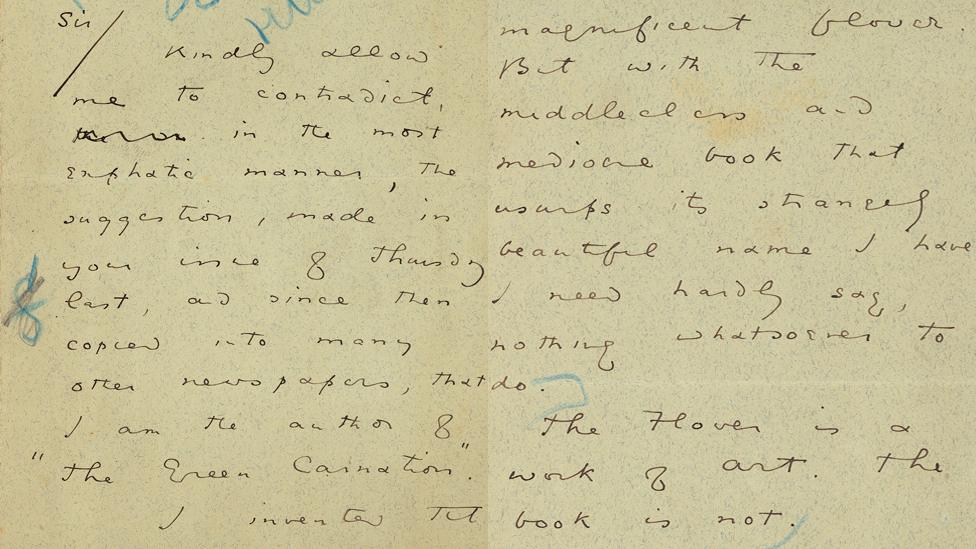 Sir
Kindly allow
me to contradict,
in the most
emphatic manner, the
suggestion, made in
your issue of Thursday
last, and since then
copied into many
other newspapers, that
I am the author of
"The Green Carnation".
I invented that
magnificent flower.
But with the
middleclass and
mediocre book that
usurps its strangely
beautiful name I have,
I need hardly say,
nothing whatsoever to
do.
The Flower is a
work of art. The
book is not.